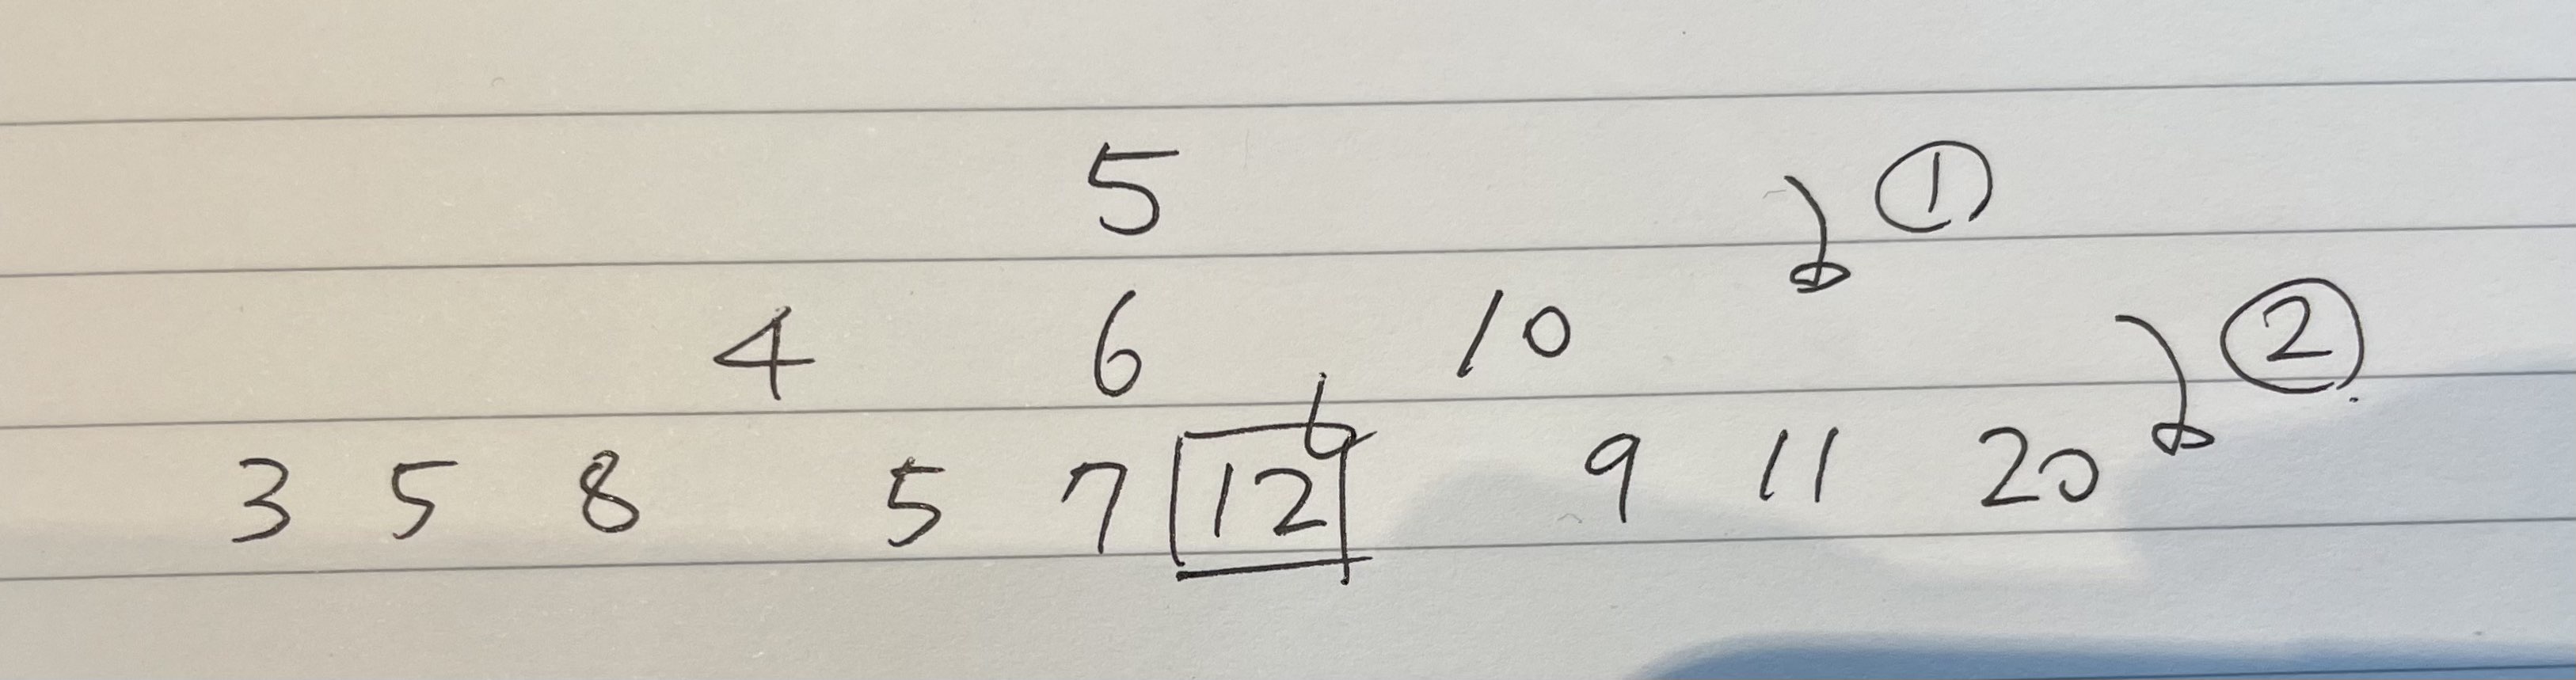 5 ①
4 6 10 ②
3 5 8 5 7 12 9 11 20